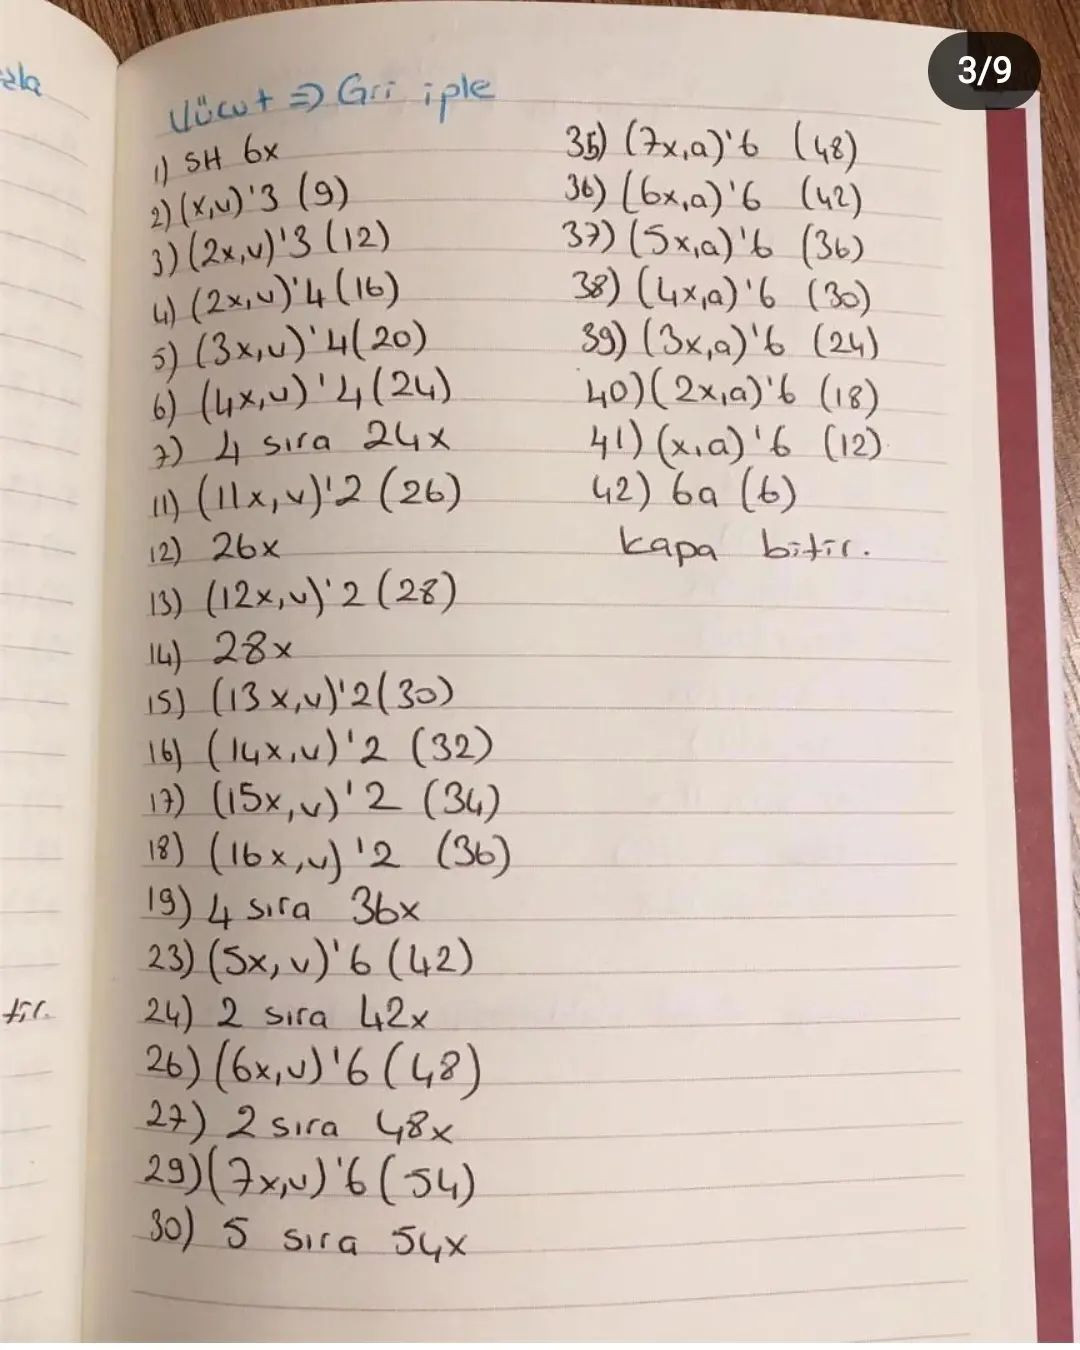 3/9
Vücut => Gri iple
1) SH 6x
2) (x,v)'3 (9)
3) (2x,v)'3 (12)
4) (2x,v)'4 (16)
5) (3x,v)'4 (20)
6) (4x,v)'4 (24)
7) 4 sıra 24x
11) (11x,v)'2 (26)
12) 26x
13) (12x,v)'2 (28)
14) 28x
15) (13x,v)'2 (30)
16) (14x,v)'2 (32)
17) (15x,v)'2 (34)
18) (16x,v)'2 (36)
19) 4 sıra 36x
23) (5x,v)'6 (42)
24) 2 sıra 42x
26) (6x,v)'6 (48)
27) 2 sıra 48x
29) (7x,v)'6 (54)
30) 5 sıra 54x
35) (7x,a)'6 (48)
36) (6x,a)'6 (42)
37) (5x,a)'6 (36)
38) (4x,a)'6 (30)
39) (3x,a)'6 (24)
40) (2x,a)'6 (18)
41) (x,a)'6 (12)
42) 6a (6)
kapa bitir.